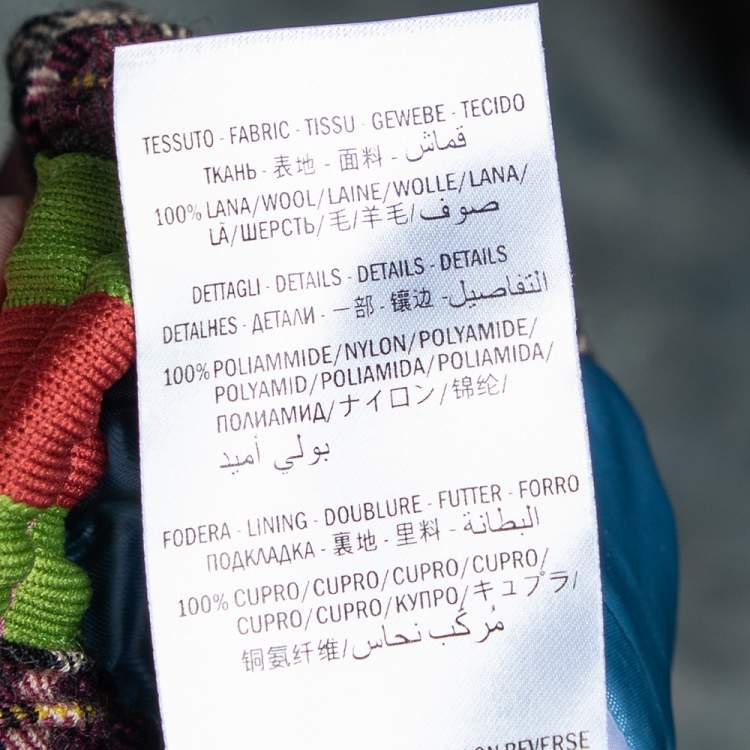 TESSUTO - FABRIC - TISSU - GEWEBE - TECIDO
ТКАНЬ - 表地 - 面料 - قماش
100% LANA/WOOL/LAINE/WOLLE/LANA/
LÃ/ШЕРСТЬ/毛/羊毛/صوف
DETTAGLI - DETAILS - DETAILS - DETAILS
DETALHES - ДЕТАЛИ - 一部 - 镶边 - التفاصيل
100% POLIAMMIDE/NYLON/POLYAMIDE/
POLYAMID/POLIAMIDA/POLIAMIDA/
ПОЛИАМИД/ナイロン/锦纶/
بولي أميد
FODERA - LINING - DOUBLURE - FUTTER - FORRO
ПОДКЛАДКА - 裏地 - 里料 - البطانة
100% CUPRO/CUPRO/CUPRO/CUPRO/
CUPRO/CUPRO/КУПРО/キュプラ/
铜氨纤维/مُركّب نحاس
ON REVERSE